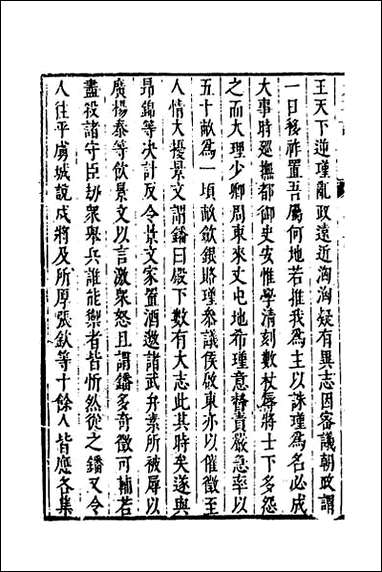 王天下逆瑾亂政遠近洶洶疑有異志因審議朝政謂
一日移祚置吾屬何地若推我為主以誅瑾為名必成
大事時廵撫都御史安惟學清刻數杖辱將士下多怨
之而大理少卿周東來丈屯地希瑾意督責嚴急率以
五十畝為一頃畝歛銀賂瑾叅議侯啟東亦以催徵至
人情大擾景文謂鐇曰殿下數有大志此其時矣遂與
昂錦等决計反令景文家置酒邀諸武弁素所被辱以
廣楊泰等飲景文以言激衆怒且謂鐇多奇徵可輔若
盡殺諸守臣刼衆舉兵誰能禦者皆忻然從之鐇又令
人往平虜城說戍將及所厚張欽等十餘人皆應各集